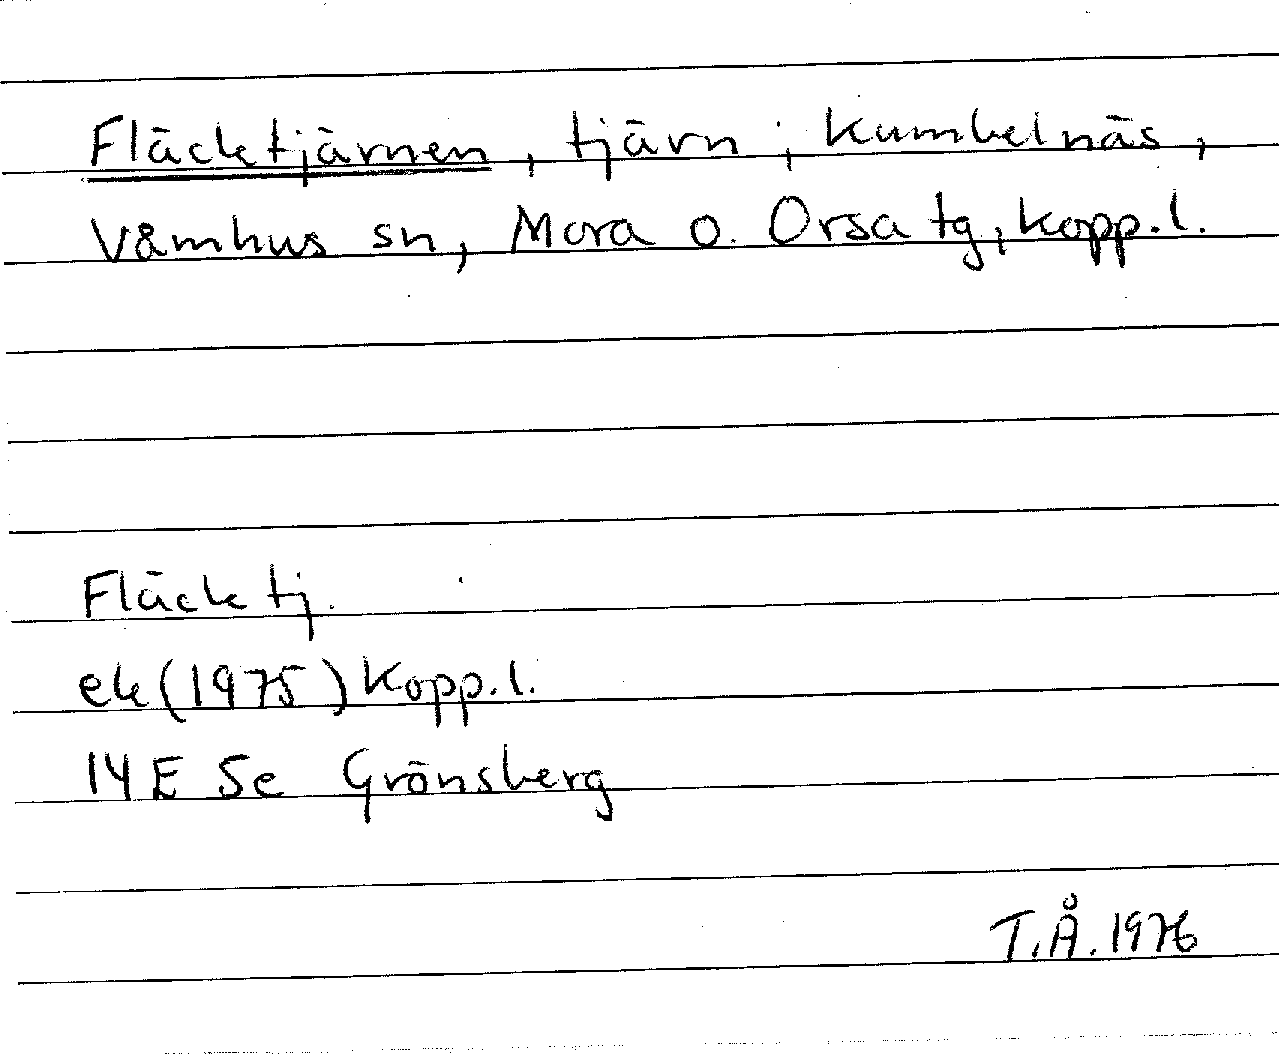 Fläcktjärnen, tjärn, Kumbelnäs,
Våmhus sn, Mora o. Orsa tg, Kopp.l.
Fläcktj.
ek(1975) Kopp.l.
14E Se Grönsberg
T.Å.1976